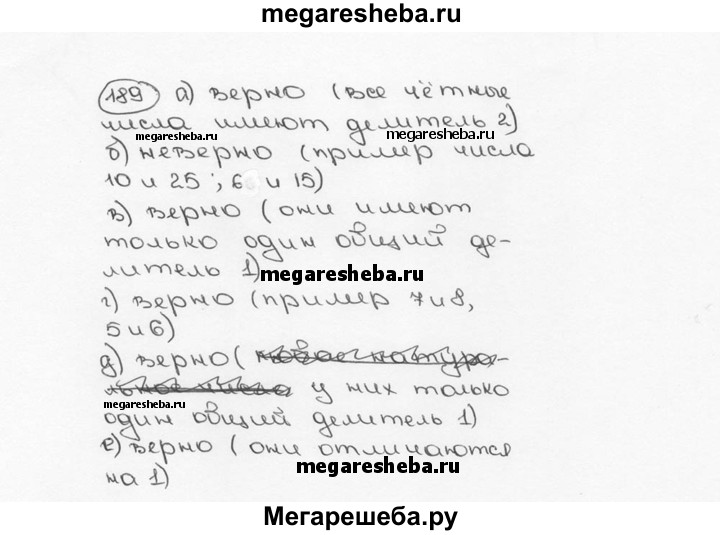 megaresheba.ru
189 а) верно (все чётные
числа имеют делитель 2)
megaresheba.ru megaresheba.ru
б) неверно (пример числа
10 и 25 ; 6 и 15)
в) верно (они имеют
только один общий де-
литель 1)
megaresheba.ru
г) верно (пример 7 и 8,
5 и 6)
д) верно (
у них только
megaresheba.ru
один общий делитель 1)
е) верно (они отличаются
на 1)
megaresheba.ru
Мегарешеба.ру